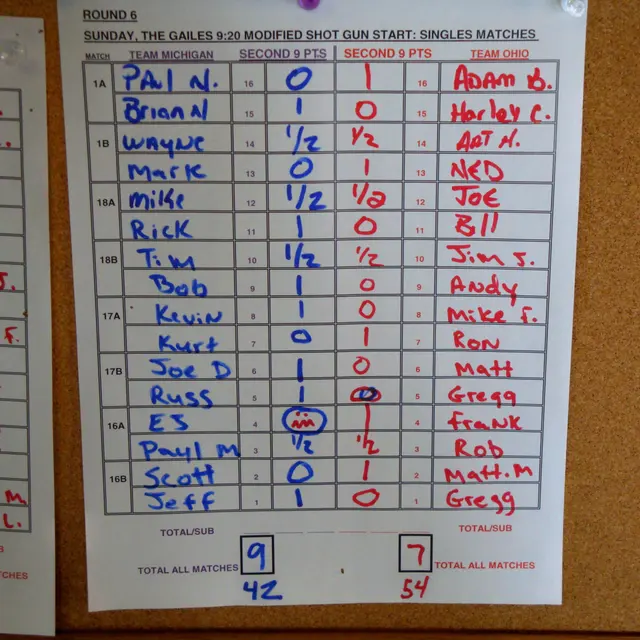 ROUND 6
SUNDAY, THE GAILES 9:20 MODIFIED SHOT GUN START: SINGLES MATCHES
MATCH TEAM MICHIGAN SECOND 9 PTS SECOND 9 PTS TEAM OHIO
1A PAul N. 16 0 1 16 ADAM B.
Brian N 15 1 0 15 Harley C.
1B WAYNE 14 1/2 1/2 14 ART N.
Mark 13 0 1 13 NED
18A Mike 12 1/2 1/2 12 JOE
Rick 11 1 0 11 Bill
18B Tim 10 1/2 1/2 10 Jim J.
Bob 9 1 0 9 Andy
17A Kevin 8 1 0 8 Mike F.
Kurt 7 0 1 7 RON
17B Joe D 6 1 0 6 Matt
Russ 5 1 0 5 Gregg
16A EJ 4 1 4 FRANK
Paul M 3 1/2 1/2 3 Rob
16B Scott 2 0 1 2 Matt.M
Jeff 1 1 0 1 Gregg
TOTAL/SUB TOTAL/SUB
TOTAL ALL MATCHES 9 7 TOTAL ALL MATCHES
42 54
J.
F.
M.
L.